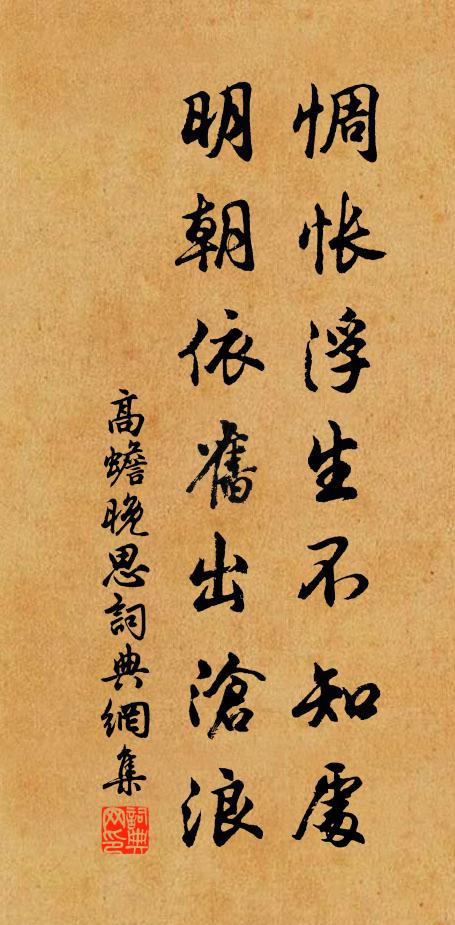 惆悵浮生不知處
明朝依舊出滄浪
高蟾晚思詞典網集
詞典網印